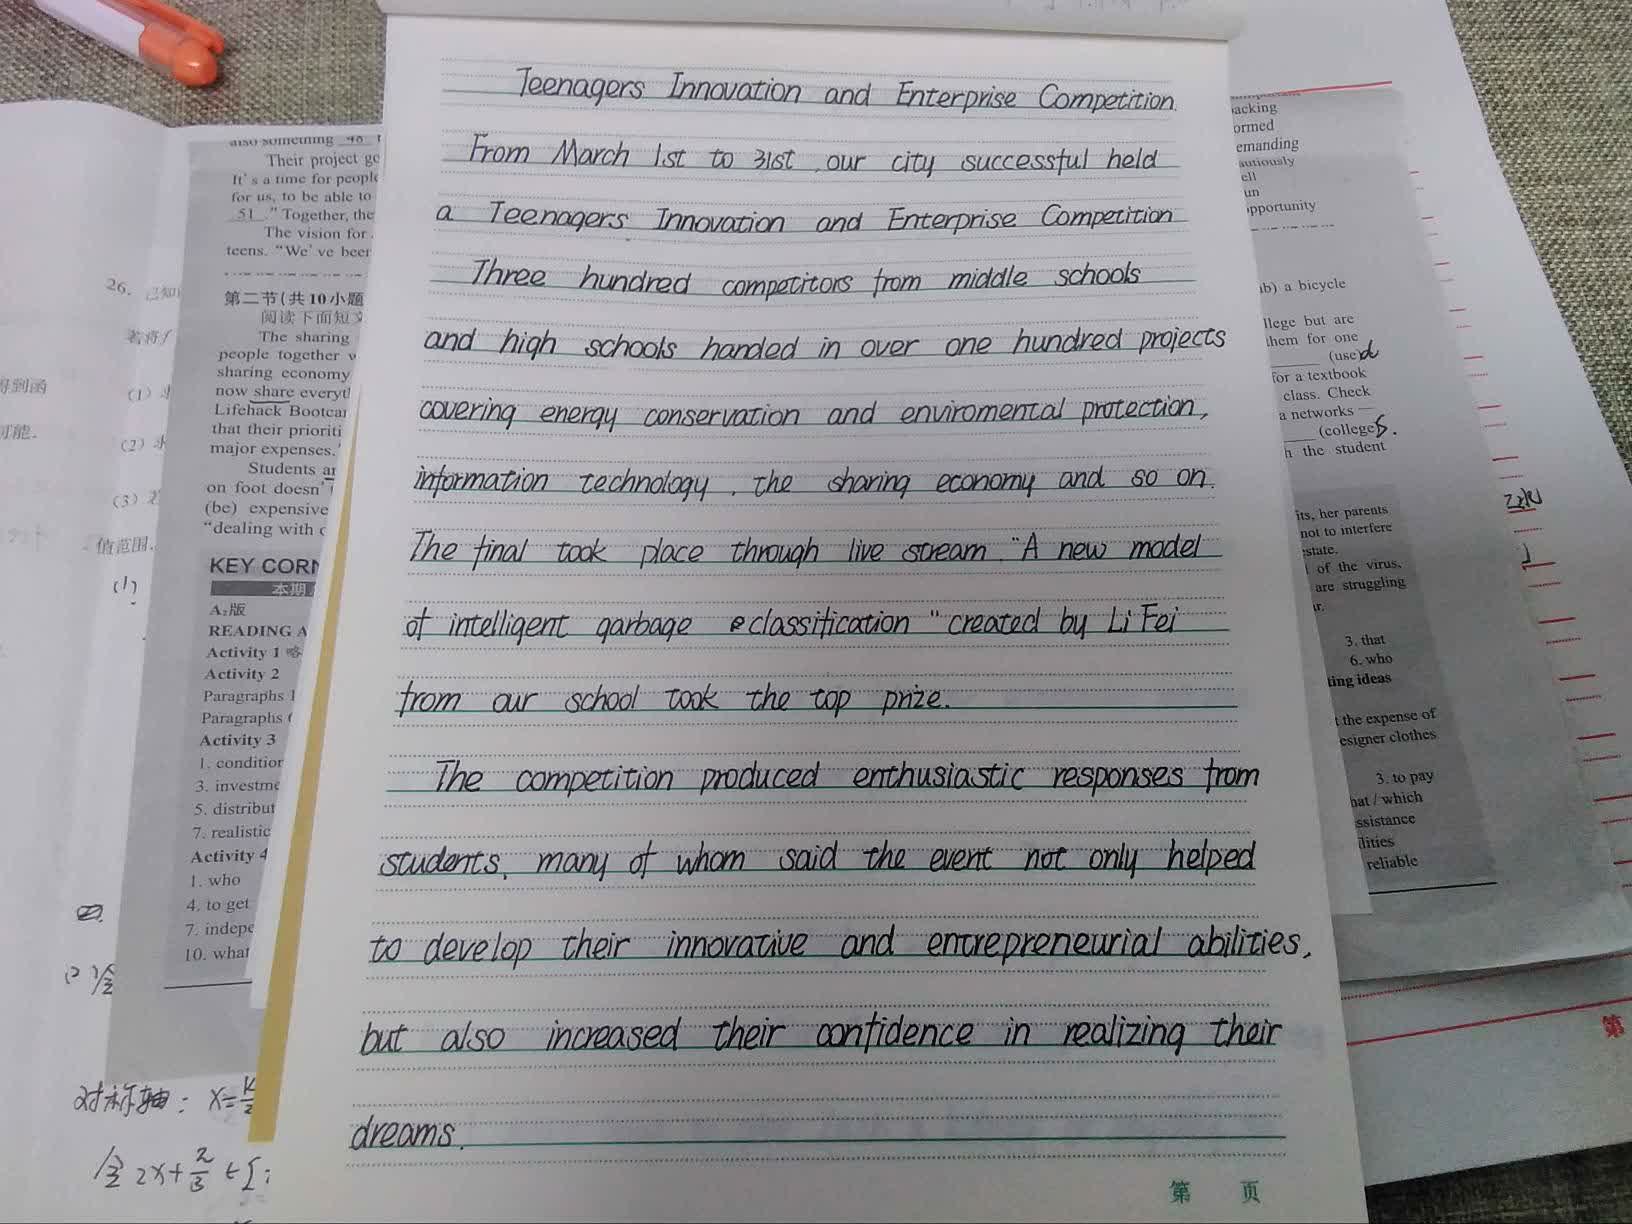 Teenagers Innovation and Enterprise Competition
From March 1st to 31st, our city successful held
a Teenagers Innovation and Enterprise Competition
Three hundred competitors from middle schools
and high schools handed in over one hundred projects
covering energy conservation and enviromental protection,
information technology, the sharing economy and so on.
The final took place through live stream. "A new model
of intelligent garbage classification" created by Li Fei
from our school took the top prize.
The competition produced enthusiastic responses from
students, many of whom said the event not only helped
to develop their innovative and entrepreneurial abilities,
but also increased their confidence in realizing their
dreams.
第 页
also something 48
Their project
It's a time for people
for us, to be able to
51." Together, the
The vision for
teens. "We've been
第二节(共10小题
阅读下面短文
The sharing
people together
sharing economy
now share
Lifehack
that their
major expenses.
Students
on foot doesn'
(be) expensive
"dealing with
KEY
本期
A₂版
READING A
Activity 1 略
Activity 2
Paragraphs 1
Paragraphs
Activity 3
1. condition
3.
5.
7. realistic
Activity 4
1. who
4. to get
7.
10. what
26. 已知
若将f
(1)
(2)
(3)
值范围.
(1)
得到函
可能.
对称轴: x=
2x+
packing
ormed
emanding
autiously
ell
un
pportunity
b) a bicycle
llege but are
them for one
(use)d
for a textbook
class. Check
a networks —
(college)s.
h the student
its, her parents
not to interfere
state.
of the virus,
are struggling
r.
3. that
6. who
ting ideas
t the expense of
esigner clothes
3. to pay
hat / which
ssistance
ilities
reliable
第